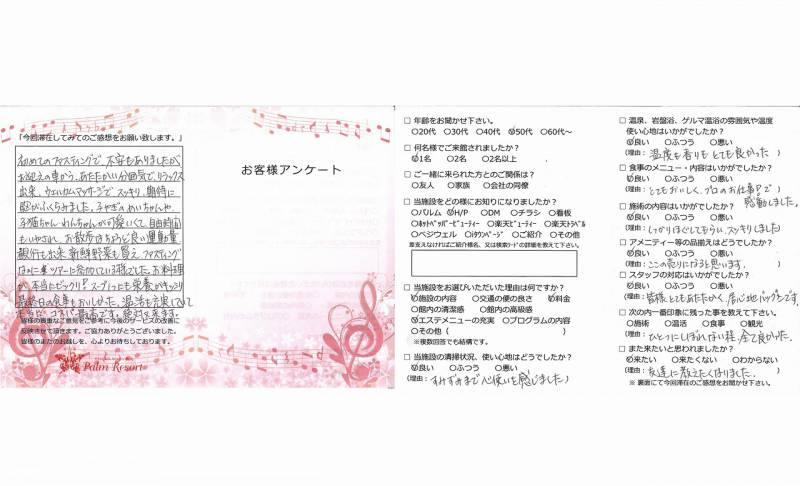 「今回滞在してみてのご感想をお願い致します。」
初めてのファスティングで、不安もありましたが、
お迎えの車から、あたたかい分囲気で、リラックス
出来、ウェルカムマッサージでスッキリ、期待に
胸がふくらみました。子やぎのめいちゃんや、
子猫ちゃん、わんちゃんが可愛いくて、自由時間
もいやされ、お散歩はちょうど良い運動量、
銀行も出来、新鮮野菜も買え、ファスティング
なのに
ツアーに参加している様でした。お料理
が、本当にビックリ!スープ1つにも栄養がギッシリ
最終日の食事もおいしかった。温活も充実してて
本当に、コスパ最高です。絶対又来ます。
皆様の貴重なご意見をご参考に今後のサービスの改善に
反映させて頂きます。ご協力ありがとうございました。
皆様のまたのお越しを、心よりお待ちしております。
Palm Resort
お客様アンケート
□ 年齢をお聞かせ下さい。
○20代 ○30代 ○40代 ○50代 ○60代~
□ 何名様でご来館されましたか?
○1名 ○2名 ○2名以上
□ ご一緒に来られた方とのご関係は?
○友人 ○家族 ○会社の同僚
□ 当施設をどの様にお知りになりましたか?
○パルム ○H/P ○DM ○チラシ ○看板
○ホットペッパービューティー ○楽天ビューティー ○楽天トラベル
○ベジウェル ○iタウンページ ○ご紹介 ○その他
差支えなければご紹介様名、又は検索ワードの詳細を教えて下さい。
□ 当施設をお選びいただいた理由は何ですか?
○施設の内容 ○交通の便の良さ ○料金
○館内の清潔感 ○館内の高級感
○エステメニューの充実 ○プログラムの内容
○その他( )
※複数回答でも結構です。
□ 当施設の清掃状況、使い心地はどうでしたか?
○良い ○ふつう ○悪い
(理由: すみずみまで心使いを感じました )
□ 温泉、岩盤浴、ゲルマ温浴の雰囲気や温度
使い心地はいかがでしたか?
○良い ○ふつう ○悪い
(理由: 温度も香りもとても良かった )
□ 食事のメニュー・内容はいかがでしたか?
○良い ○ふつう ○悪い
(理由: とてもおいしく、プロのお仕事で感動しました。
□ 施術の内容はいかがでしたか?
○良い ○ふつう ○悪い
(理由: しっかりほぐしてもらい、スッキリしました )
□ アメニティー等の品揃えはどうでしたか?
○良い ○ふつう ○悪い
(理由: ここの売りになると思います。 )
□ スタッフの対応はいかがでしたか?
○良い ○ふつう ○悪い
(理由: 皆様とてもあたたかく、居心地バツグンです。
□ 次の内一番印象に残った事を教えて下さい。
○施術 ○温活 ○食事 ○観光
(理由: ひとつにしぼれない程、全て良かった。 )
□ また来たいと思われましたか?
○来たい ○来たくない ○わからない
(理由: 友達に教えたくなりました。 )
※ 裏面にて今回滞在のご感想をお聞かせ下さい。